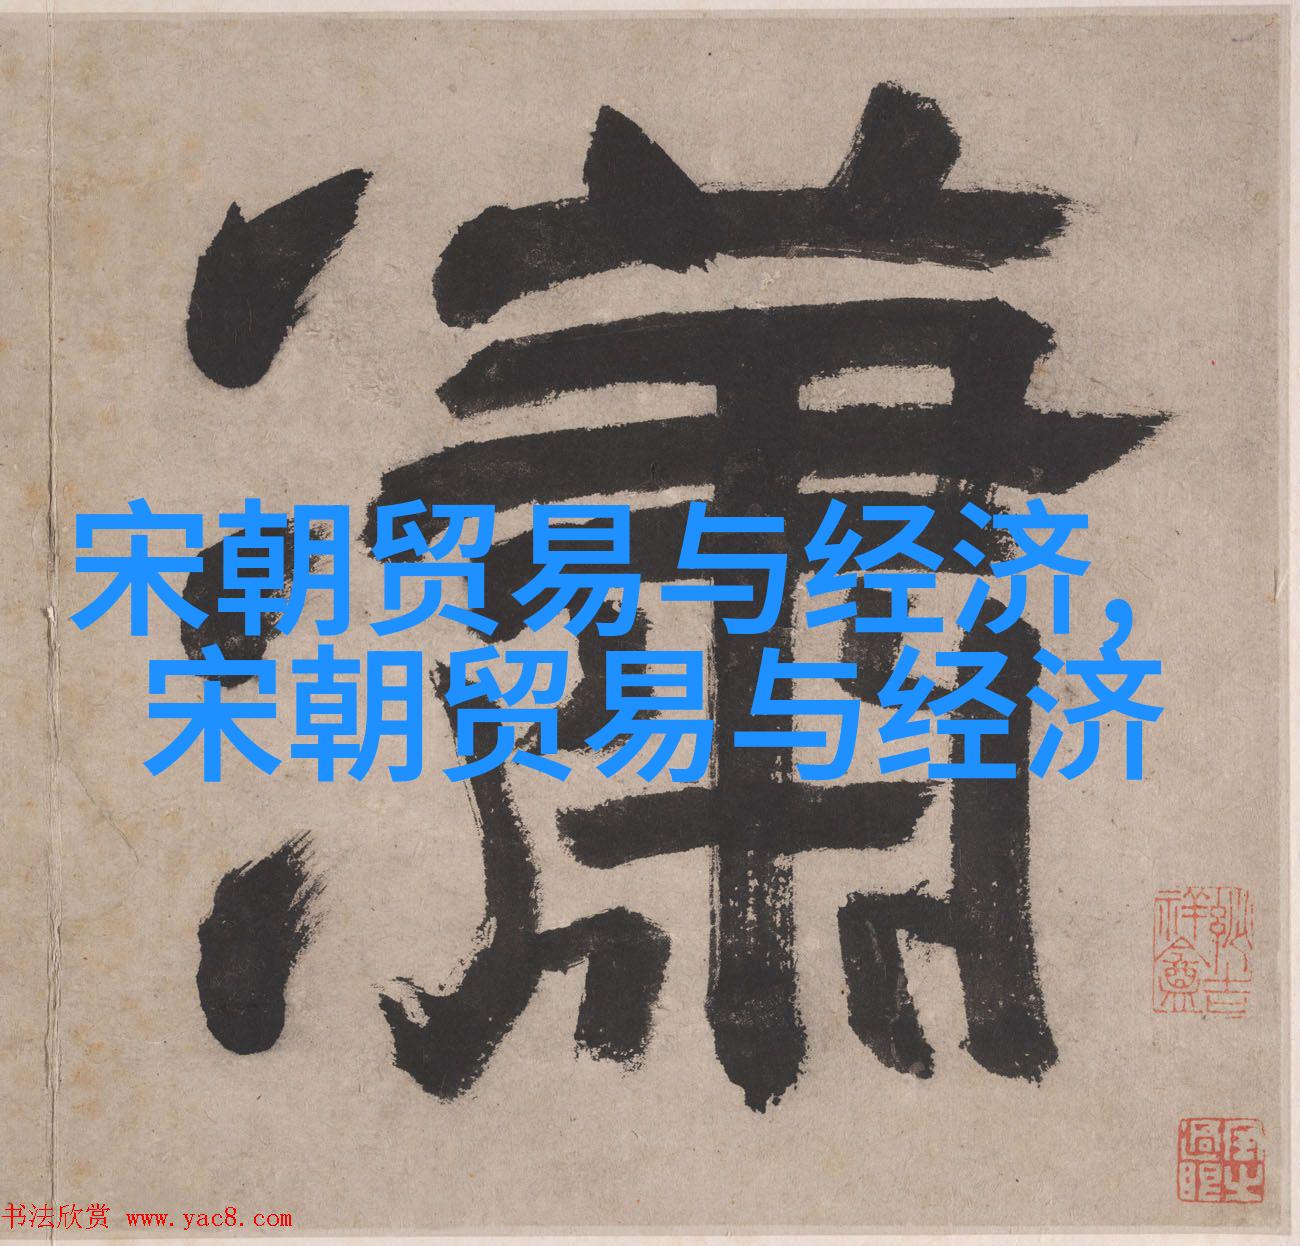 瀟
宋朝贸易与经济,
宋朝贸易与经济
书法欣赏 www.yac8.com